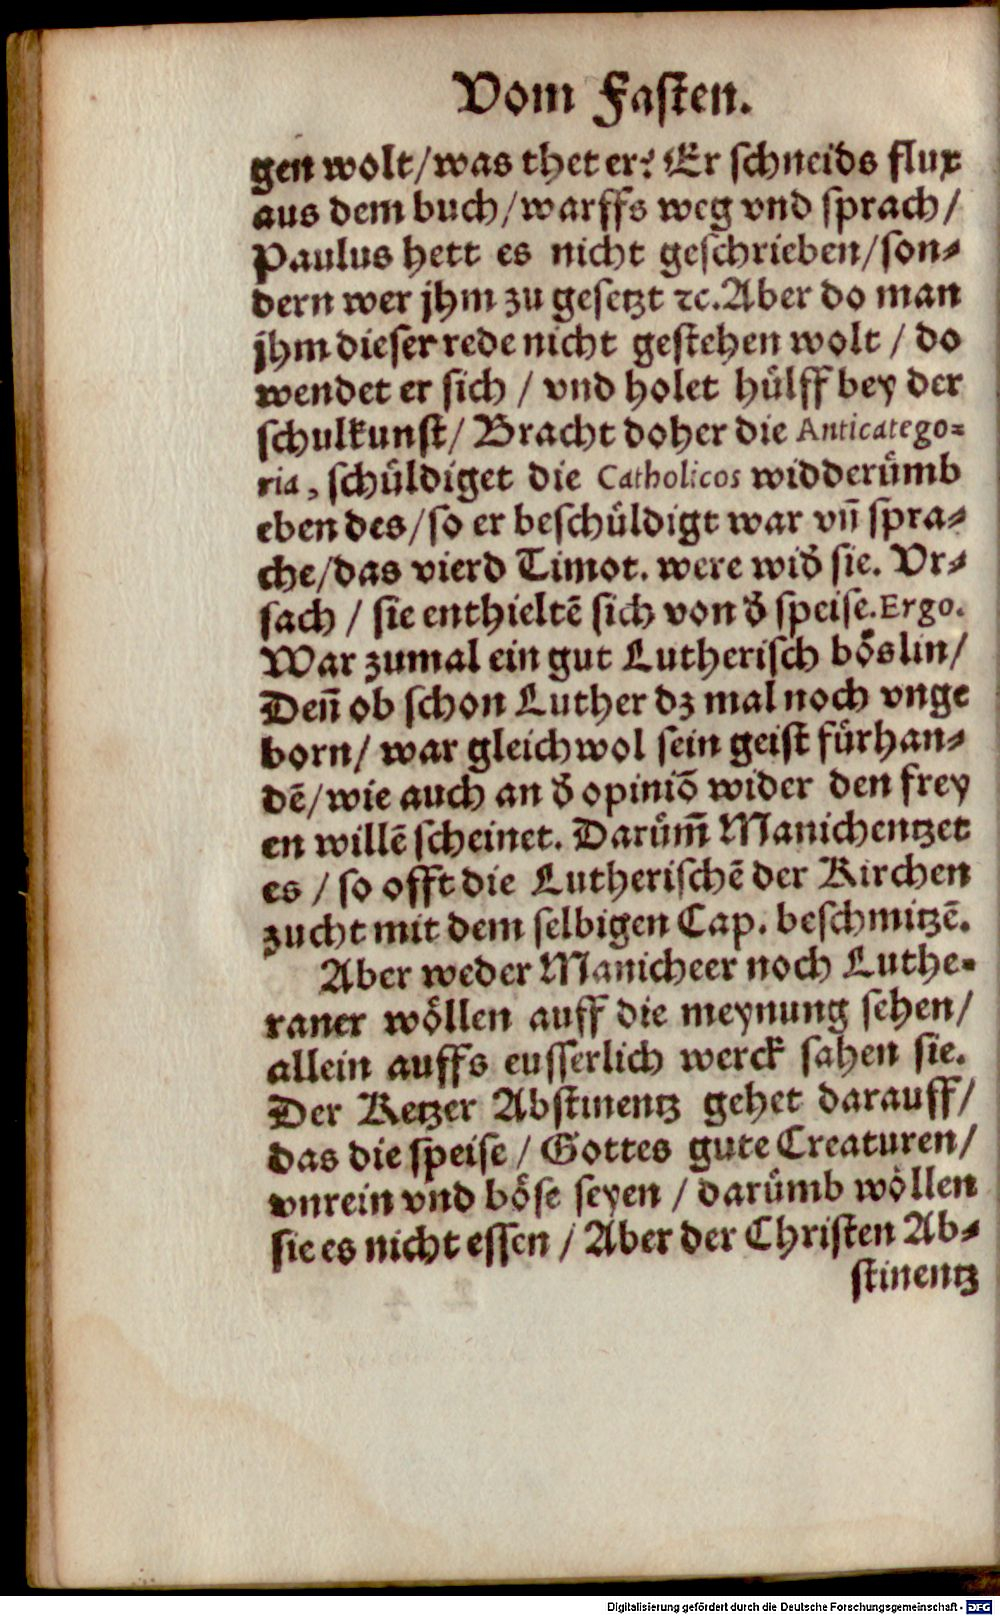 Vom Fasten.
gen wolt/was thet er? Er schneids flux
aus dem buch/warffs weg vnd sprach/
Paulus hett es nicht geschrieben/son⸗
dern wer jhm zu gesetzt ⁊c. Aber do man
jhm dieser rede nicht gestehen wolt / do
wendet er sich / vnd holet huͤlff bey der
schulkunst/ Bracht doher die Anticatego⸗
ria, schuͤldiget die Catholicos widderuͤmb
eben des/so er beschuͤldigt war vñ spra⸗
che/das vierd Timot. were wid̕ sie. Vr⸗
sach / sie enthieltẽ sich von d̕ speise. Ergo.
War zumal ein gut Lutherisch boͤslin/
Deñ ob schon Luther dz mal noch vnge
born/ war gleichwol sein geist fuͤrhan⸗
dẽ/wie auch an d̕ opiniõ wider den frey
en willẽ scheinet. Daruͤm̃ Manichentzet
es / so offt die Lutherischẽ der Kirchen
zucht mit dem selbigen Cap. beschmitzẽ.
Aber weder Manicheer noch Luthe⸗
raner woͤllen auff die meynung sehen/
allein auffs eusserlich werck sahen sie.
Der Ketzer Abstinentz gehet darauff/
das die speise / Gottes gute Creaturen/
vnrein vnd boͤse seyen / daruͤmb woͤllen
sie es nicht essen / Aber der Christen Ab⸗
stinentz
Digitalisierung gefördert durch die Deutsche Forschungsgemeinschaft - DFG